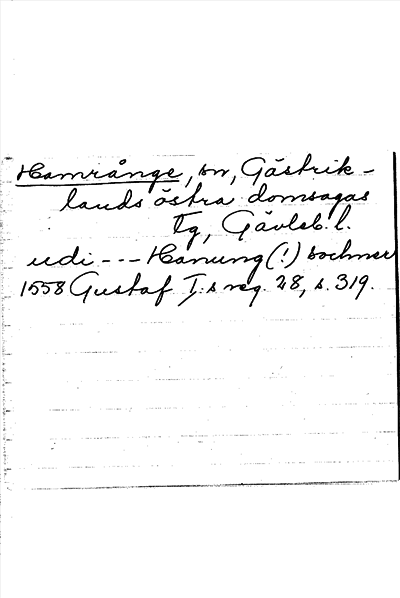 Hamrånge, sn, Gästrik-
lands östra domsagas
tg, Gävleb. l.
udi --- Hanung (!) sochner
1558 Gustaf I:s reg. 28, s. 319.